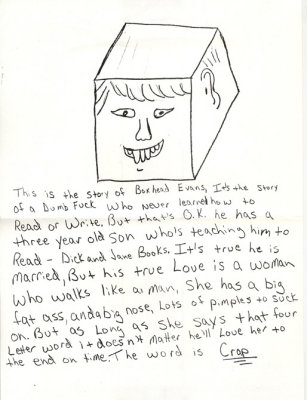 This is the story of Boxhead Evans, It's the story
of a Dumb Fuck who never learned how to
Read or Write. But that's O.K. he has a
three year old son who's teaching him to
Read - Dick and Jane Books. It's true he is
married, But his true Love is a woman
who walks like a man, She has a big
fat ass, and a big nose, Lots of pimples to suck
on. But as Long as She says that four
Letter word it doesn't matter he'll Love her to
the end on time. The word is Crap